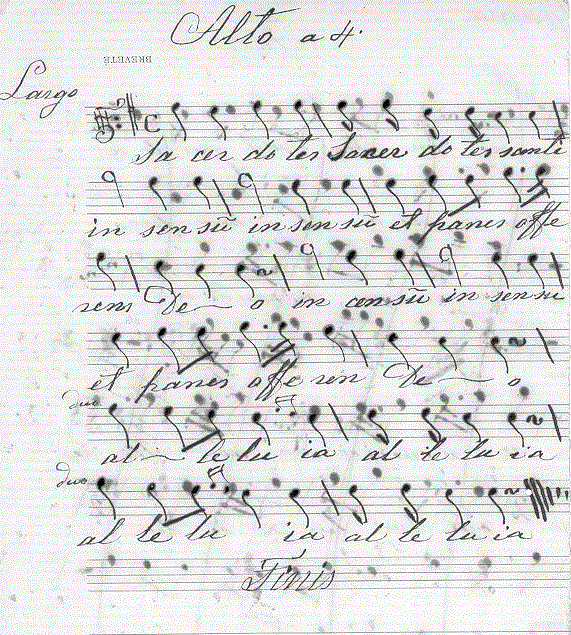 Alto a 4.
BREVETÉ
Largo
Sa cer do tes Sacer do tes santi
in sen sū in sen sū et panes offe
rens De — o in cen sū in sen su
et panes offe ren De — o
duo
al — le lu ia al le lu ia
duo
al le lu ia al le lu ia
Finis